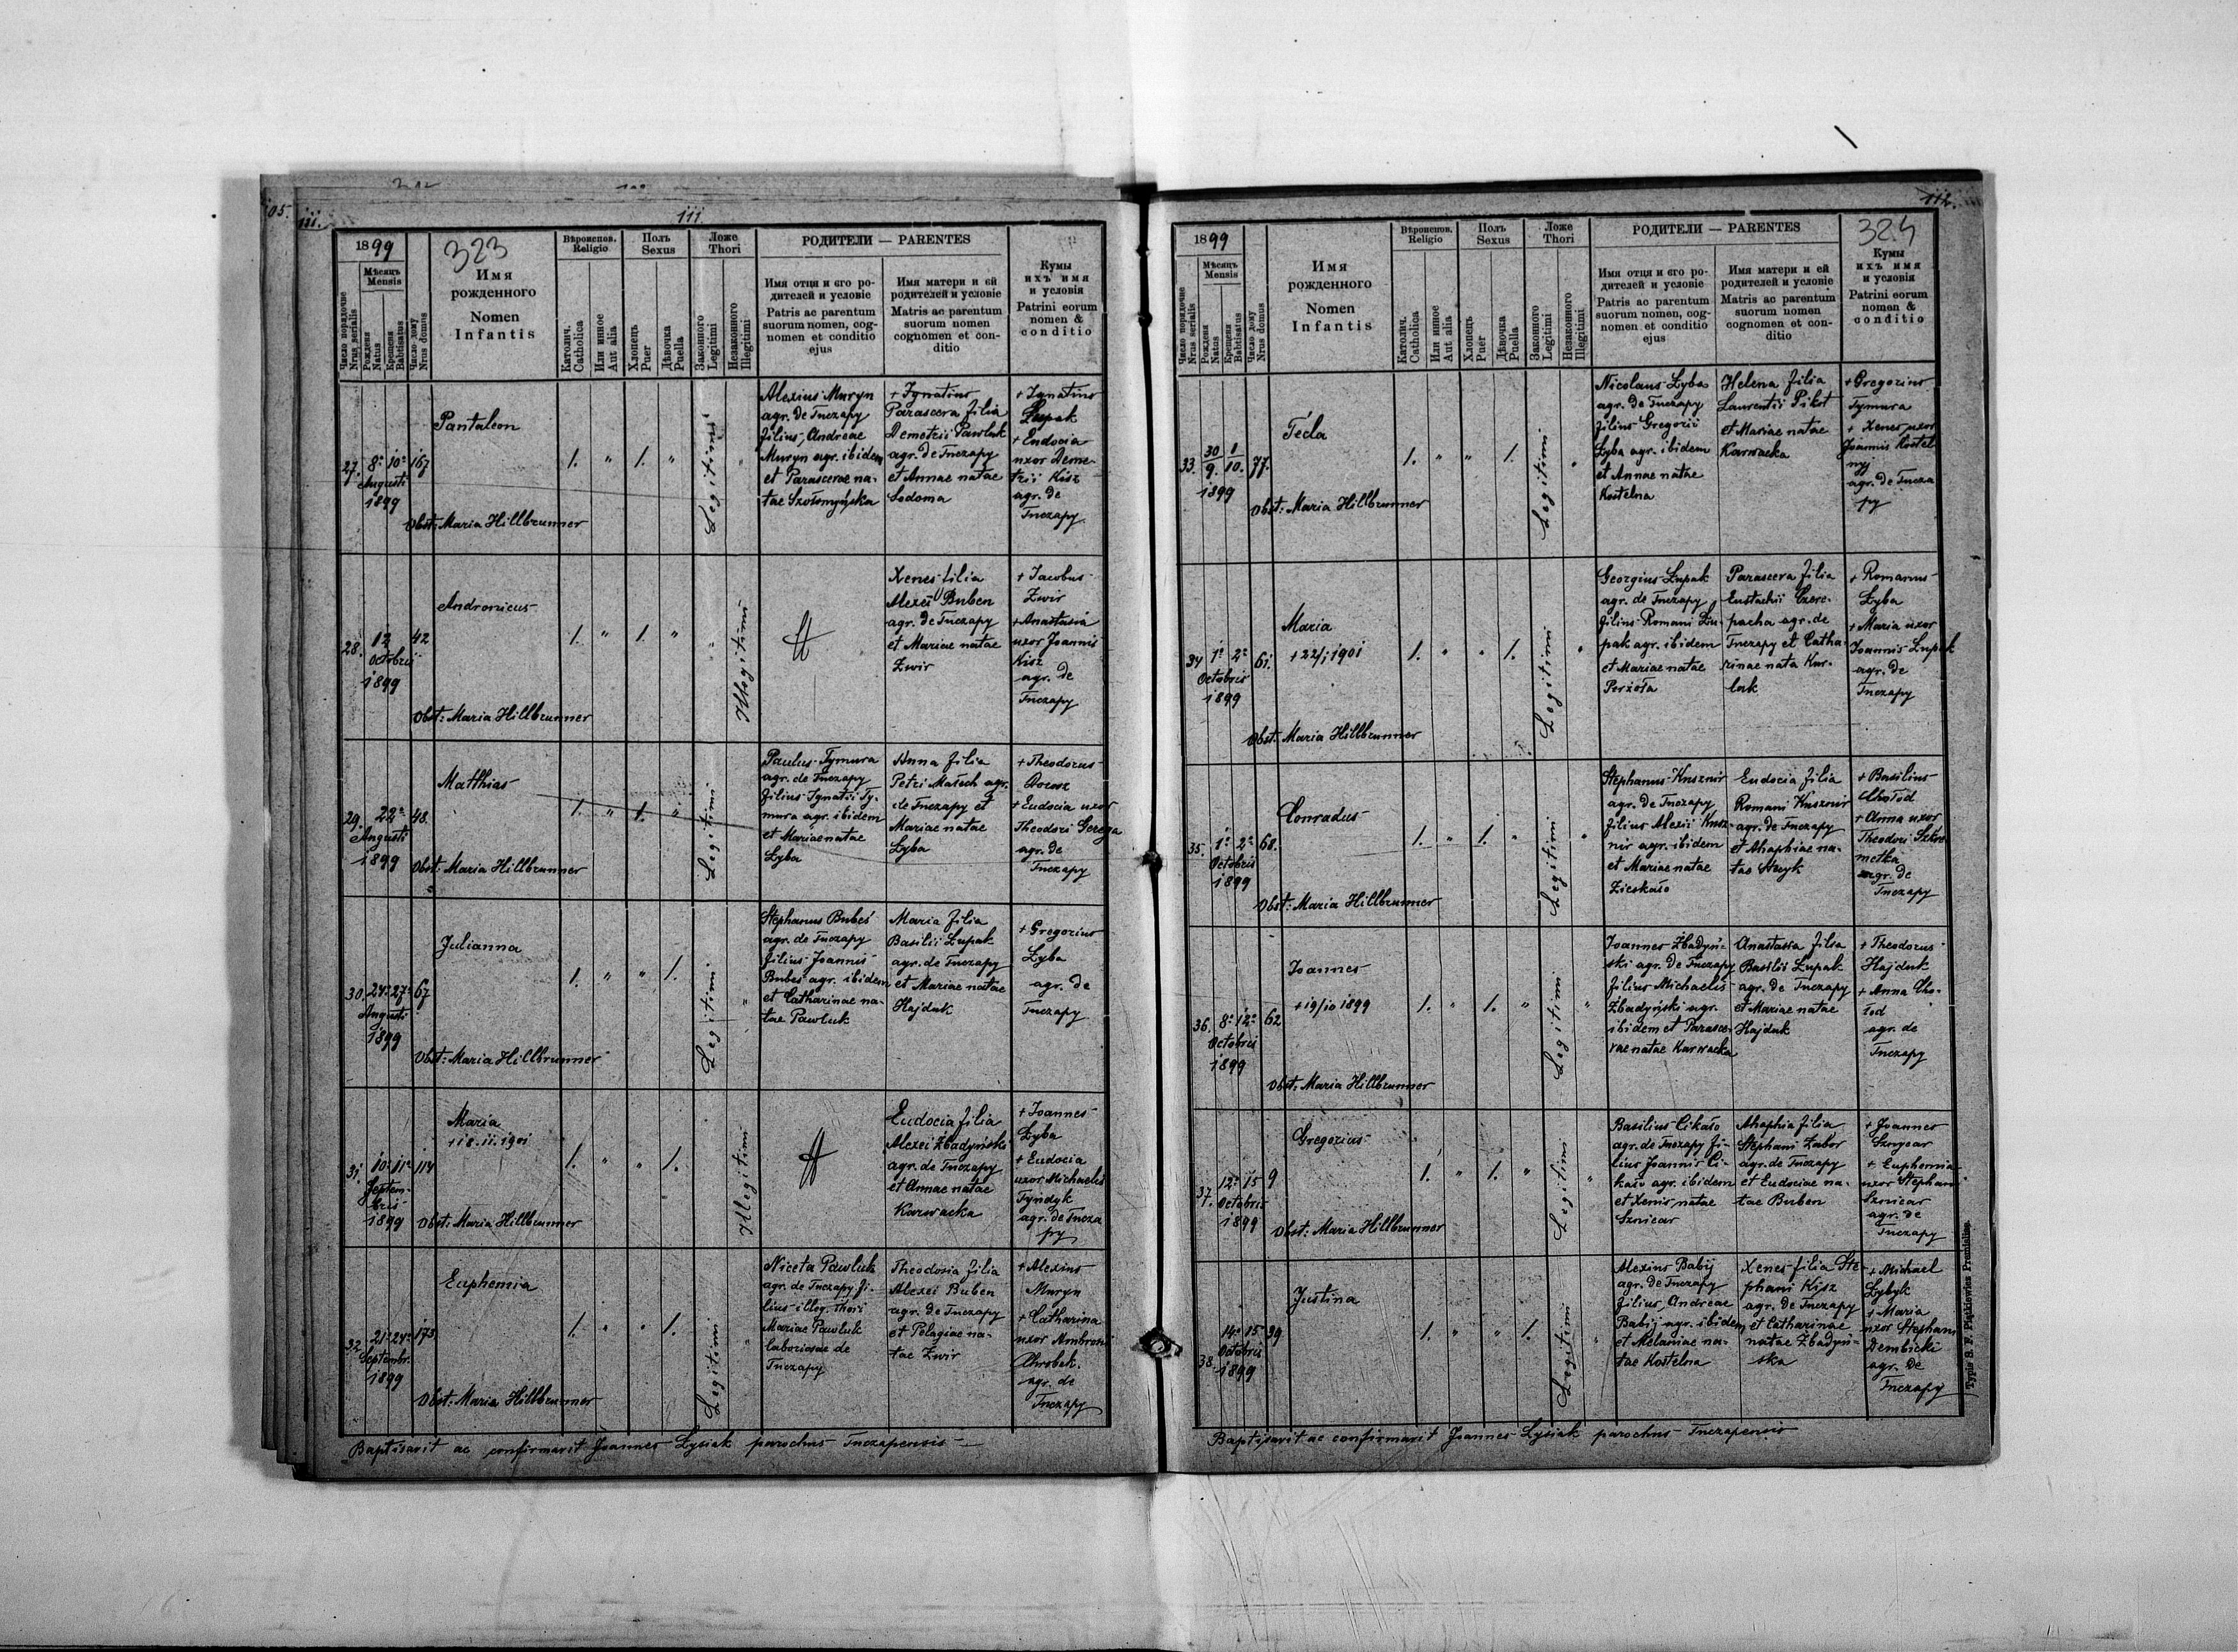 111.
1899
323
Имя
рожденного
Nomen
Infantis
Вѣроиспов.
Religio
Полъ
Sexus
Ложе
Thori
РОДИТЕЛИ — PARENTES
Мѣсяцъ
Mensis
Число порядочне
Nrus serialis
Рожденя
Natus
Крещеня
Babtisatus
Число дому
Nrus domus
Католич.
Catholica
Или инное
Aut alia
Хлопецъ
Puer
Дѣвочка
Puella
Законного
Legitimi
Незаконного
Illegitimi
Имя отця и єго ро-
дителей и условіє
Patris ac parentum
suorum nomen, cog-
nomen et conditio
ejus
Имя матери и єй
родителей и условіє
Matris ac parentum
suorum nomen
cognomen et con-
ditio
Кумы
ихъ имя
и условія
Patrini eorum
nomen &
conditio
27.
8. 10.
Augusti
1899
167
Pantaleon
Obst: Maria Hillbrunner
1. " 1. "
Legitimi
Alexius Muryn
agr. de Tuczapy
filius Andreae
Muryn agr. ibidem
et Parascevae na-
tae Szołomyńska
+ Ignatius
Parascева filia
Demetrii Pawluk
agr. de Tuczapy
et Annae natae
Sodoma
+ Ignatius
Łupak
+ Eudocia
uxor Deme-
trii Kisz
agr. de
Tuczapy
28.
12
Octobris
1899
42
Andronicus
Obst: Maria Hillbrunner
1. " 1. "
Illegitimi
Xenes filia
Alexei Buben
agr. de Tuczapy
et Mariae natae
Zwir
+ Jacobus
Zwir
+ Anastasia
uxor Joannis
Kisz
agr. de
Tuczapy
29.
22
Augusti
1899
48.
Matthias
Obst: Maria Hillbrunner
1. " 1. "
Legitimi
Paulus Tymura
agr. de Tuczapy
filius Ignatii Ty-
mura agr. ibidem
et Mariae natae
Łyba
Anna filia
Petri Małech agr.
de Tuczapy et
Mariae natae
Łyba
+ Theodorus
+ Eudocia uxor
Theodori Gerega
agr. de
Tuczapy
30.
24. 27.
Augusti
1899
67
Julianna
Obst: Maria Hillbrunner
1. " " 1.
Legitimi
Stephanus Bubeś
agr. de Tuczapy
filius Joannis
Bubeś agr. ibidem
et Catharinae na-
tae Pawluk
Maria filia
Basilii Łupak
agr. de Tuczapy
et Mariae natae
Hajduk
+ Gregorius
Łyba
agr. de
Tuczapy
31.
10. 11.
Septem-
bris
1899
114
Maria
+ 18.11.1901
Obst: Maria Hillbrunner
1. " " 1.
Illegitimi
Eudocia filia
Alexei Zbadyński
agr. de Tuczapy
et Annae natae
Karwacka
+ Joannes
Łyba
+ Eudocia
uxor Michaelis
Tyndyk
agr. de Tucza
py
32.
21. 24.
Septembr.
1899
173
Euphemia
Obst: Maria Hillbrunner
1. " " 1.
Legitimi
Niceta Pawluk
agr. de Tuczapy fi-
lius illeg. thori
Mariae Pawluk
laboriosae de
Tuczapy
Theodosia filia
Alexei Buben
agr. de Tuczapy
et Pelagiae na-
tae Zwir
+ Alexius
Muryn
+ Catharina
uxor Ambrosii
Chrobak.
agr. de
Tuczapy
Baptisavit ac confirmavit Joannes Łysiak parochus Tuczapensis
112.
1899
324
Имя
рожденного
Nomen
Infantis
Вѣроиспов.
Religio
Полъ
Sexus
Ложе
Thori
РОДИТЕЛИ — PARENTES
Мѣсяцъ
Mensis
Число порядочне
Nrus serialis
Рожденя
Natus
Крещеня
Babtisatus
Число дому
Nrus domus
Католич.
Catholica
Или инное
Aut alia
Хлопецъ
Puer
Дѣвочка
Puella
Законного
Legitimi
Незаконного
Illegitimi
Имя отця и єго ро-
дителей и условіє
Patris ac parentum
suorum nomen, cog-
nomen et conditio
ejus
Имя матери и єй
родителей и условіє
Matris ac parentum
suorum nomen
cognomen et con-
ditio
Кумы
ихъ имя
и условія
Patrini eorum
nomen &
conditio
33.
30 1
9. 10.
1899
77.
Tecla
Obst: Maria Hillbrunner
1. " " 1.
Legitimi
Nicolaus Łyba
agr. de Tuczapy
filius Gregorii
Łyba agr. ibidem
et Annae natae
Kostelna
Helena filia
Laurentii Pikot
et Mariae natae
Karwacka
+ Gregorius
Tymura
+ Xenes uxor
Joannis Kostel
nyj
agr. de Tucza
py
34
1. 2.
Octobris
1899
61.
Maria
+ 22/1 1901
Obst. Maria Hillbrunner
1. " " 1.
Legitimi
Georgius Łupak
agr. de Tuczapy
filius Romani Łu-
pak agr. ibidem
et Mariae natae
Perżoła
Parasceva filia
Eustachii Czere-
pacha agr. de
Tuczapy et Catha-
rinae nata Kur-
lak
+ Romanus
Łyba
+ Maria uxor
Joannis Łupak
agr. de
Tuczapy
35.
1. 2.
Octobris
1899
68.
Conradus
Obst: Maria Hillbrunner
1. " 1. "
Legitimi
Stephanus Kusznir
agr. de Tuczapy
filius Alexii Kusz-
nir agr. ibidem
et Mariae natae
Zieskało
Eudocia filia
Romani Kusznir
agr. de Tuczapy
et Ahaphiae na-
tae Stecyk
+ Basilius
Chołod
+ Anna uxor
Theodori Szkro-
metka
agr. de
Tuczapy
36.
8. 12.
Octobris
1899
62
Joannes
+ 19/10 1899
Obst: Maria Hillbrunner
1. " 1. "
Legitimi
Joannes Zbadyń-
ski agr. de Tuczapy
filius Michaelis
Zbadyński agr.
ibidem et Parasce-
vae natae Karwacka
Anastasia filia
Basilii Łupak
agr. de Tuczapy
et Mariae natae
Hajduk
+ Theodorus
Hajduk
+ Anna Cho-
łod
agr. de
Tuczapy
37.
12. 15
Octobris
1899
9
Gregorius
Obst: Maria Hillbrunner
1. " 1. "
Legitimi
Basilius Cikało
agr. de Tuczapy fi-
lius Joannis Ci-
kało agr. ibidem
et Xenis natae
Sznicar
Ahaphia filia
Stephani Żabor
agr. de Tuczapy
et Eudociae na-
tae Buben
+ Joannes
Sznycar
+ Euphemia
uxor Stephani
Sznicar
agr. de
Tuczapy
38.
14. 15
Octobris
1899
39
Justina
1. " " 1.
Legitimi
Alexius Babij
agr. de Tuczapy
filius Andreae
Babij agr. ibidem
et Melaniae na-
tae Kostelna
Xenes filia Ste-
phani Kisz
agr. de Tuczapy
et Catharinae
natae Zbadyń-
ska
+ Michael
Łybyk
+ Maria
uxor Stephani
Dembicki
agr. de
Tuczapy
Typis S. F. Piątkiewicz Premisliae.
Baptisavit ac confirmavit Joannes Łysiak parochus Tuczapensis